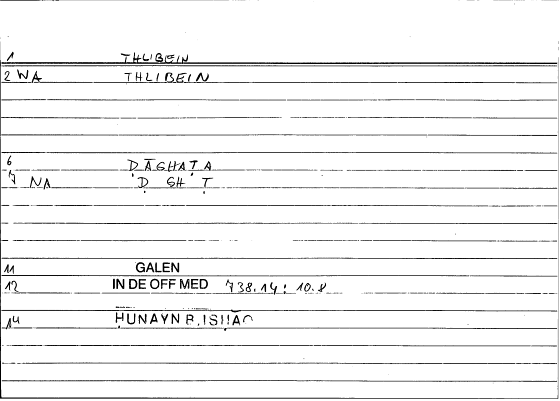 1 THLIBEIN
2 WA THLIBEIN
6 ḌĀGHAṬA
7 NA Ḍ GH Ṭ
11 GALEN
12 IN DE OFF MED 738.14 : 10.8
14 ḤUNAYN B. ISḤĀQ